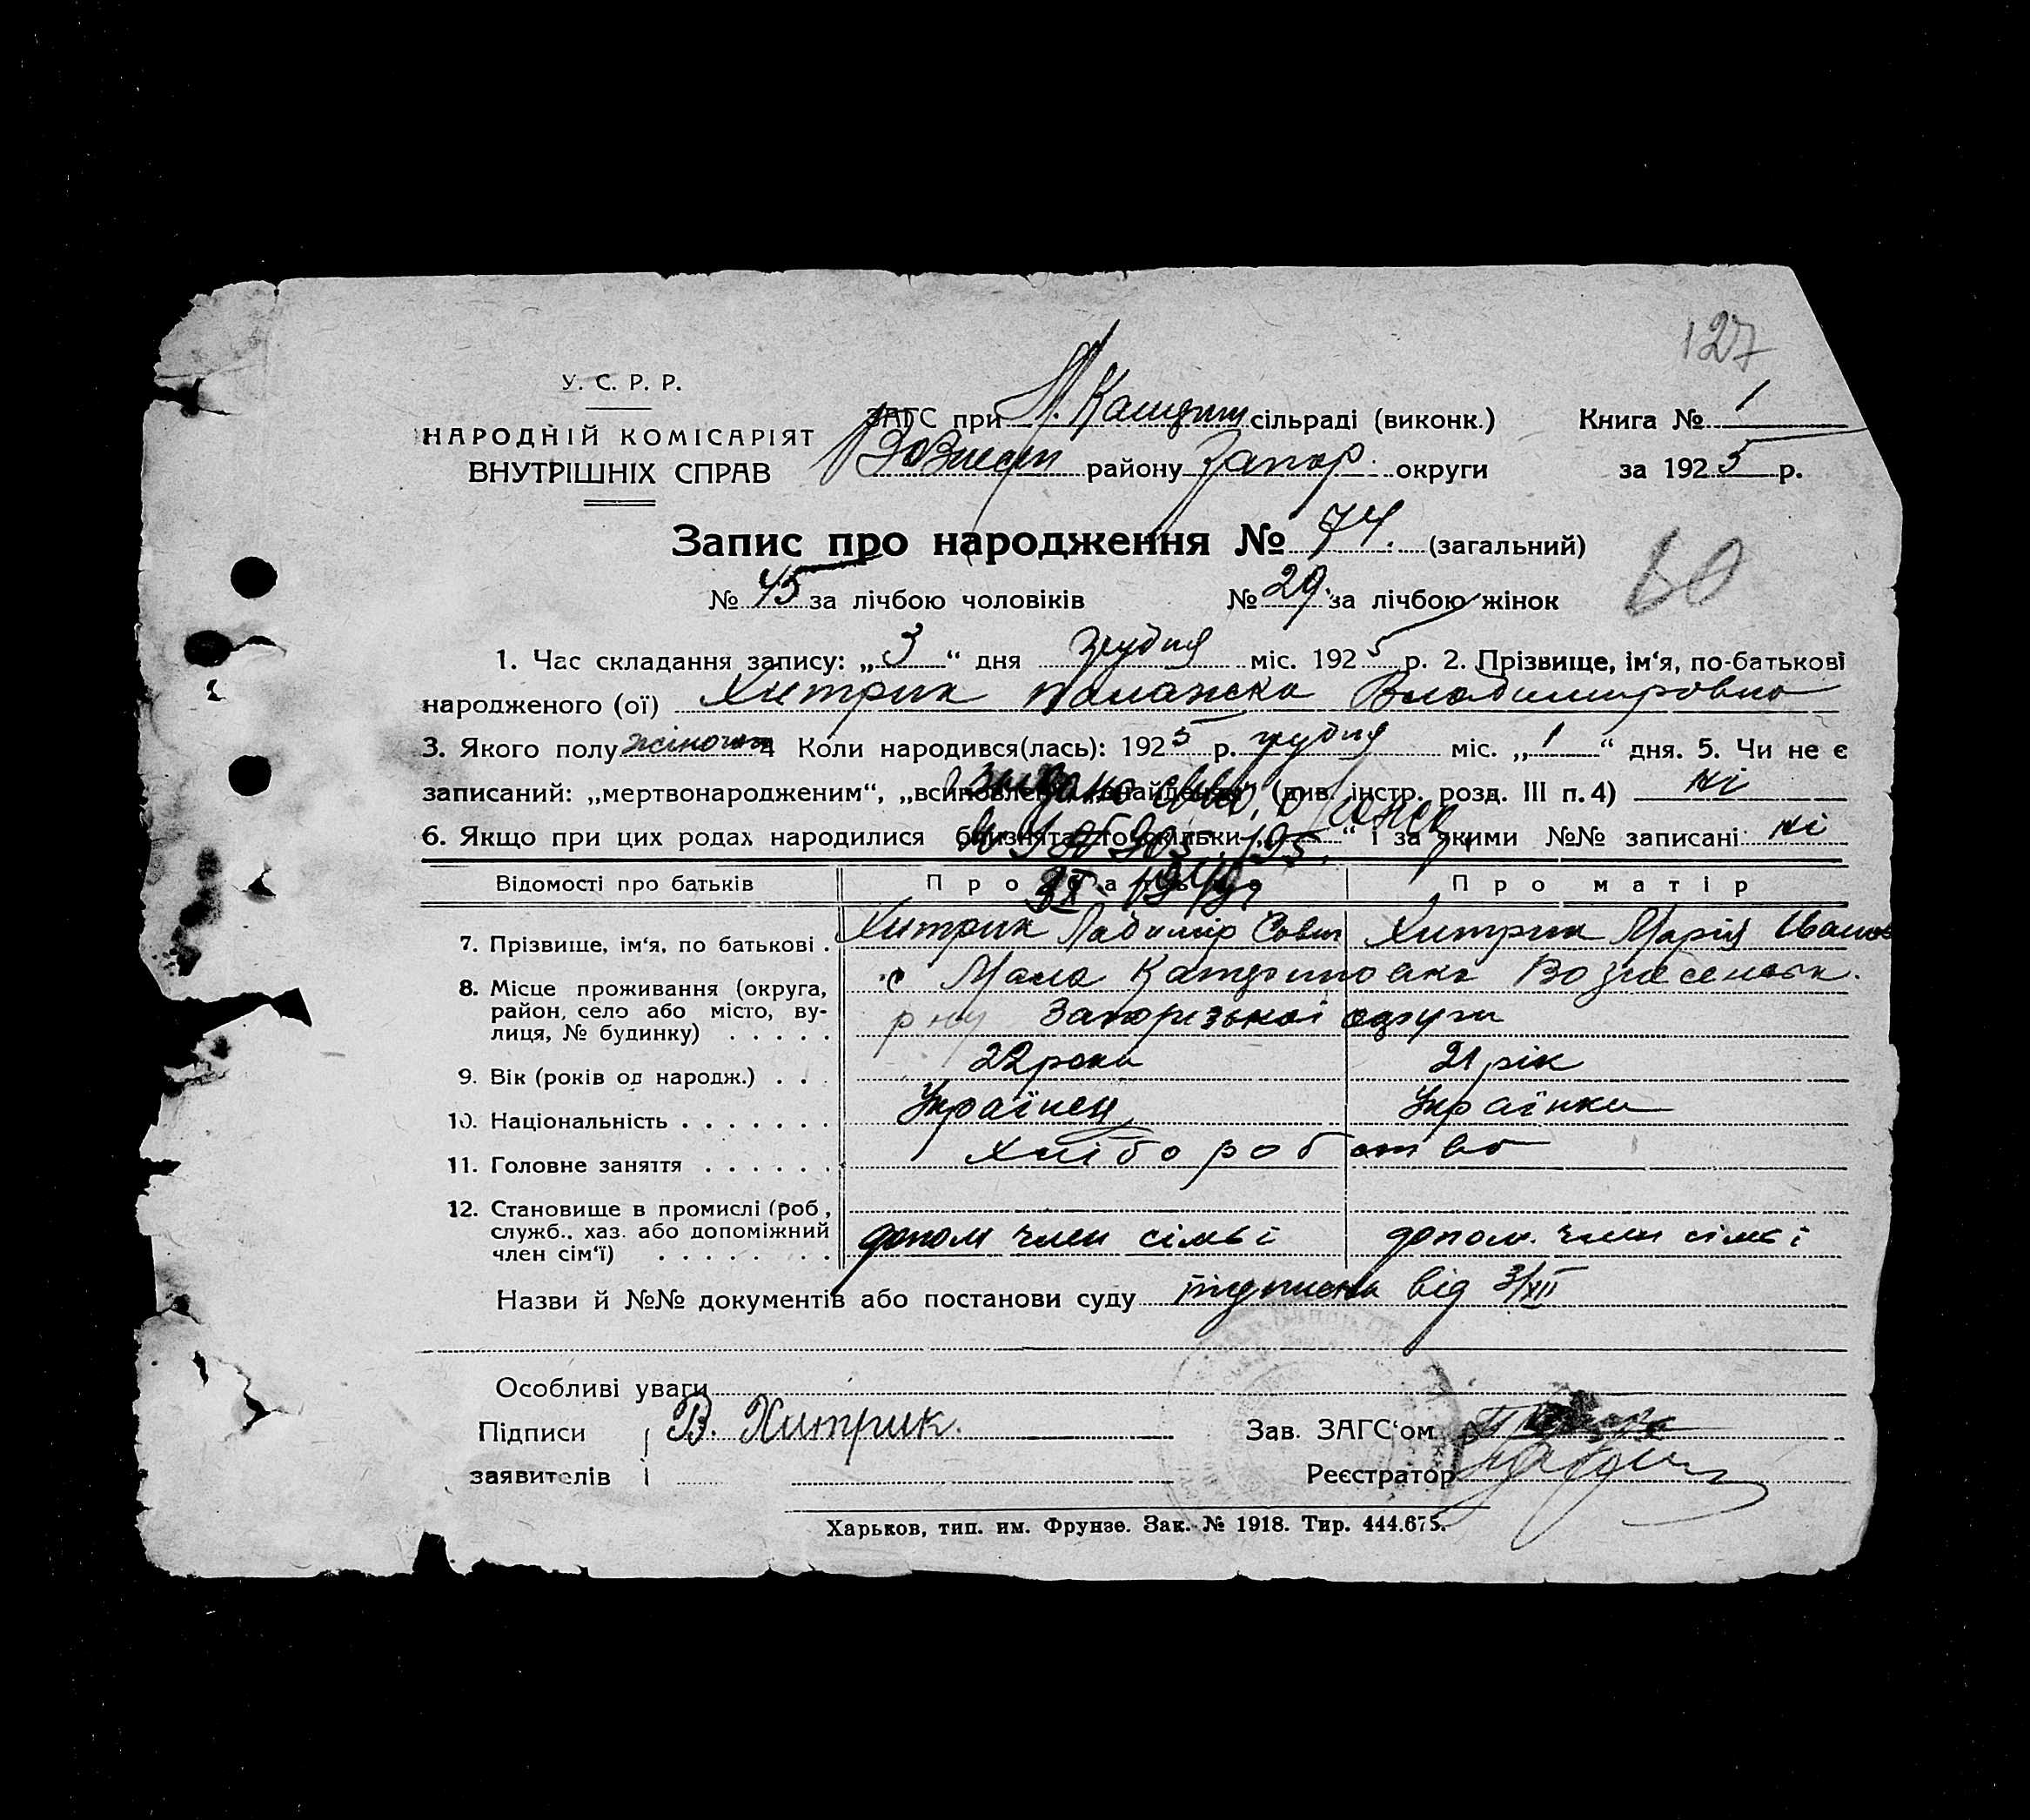 127
У. С. Р. Р.
НАРОДНІЙ КОМІСАРІЯТ
ВНУТРІШНІХ СПРАВ
ЗАГС при М. Катерин сільраді (виконк.) Книга № 1
Вознесен району Запор. округи за 1925 р.
Запис про народження № 74. (загальний)
60
№ 45 за лічбою чоловіків № 29. за лічбою жінок
1. Час складання запису: „3“ дня грудня міс. 1925 р. 2. Прізвище, ім‘я, по-батькові
народженого (ої) Хитрик Паланска Владимировна
3. Якого полу жіночого 4 Коли народився(лась): 1925 р. грудня міс. „1“ дня. 5. Чи не є
записаний: „мертвонародженим“, „всиновлен „знайденим“ (див. інстр. розд. III п. 4) ні
6. Якщо при цих родах народилися близнята, то скільки „ “ і за якими №№ записані ні
Відомості про батьків Про батька Про матір
7. Прізвище, ім‘я, по батькові . Хитрик Ладимир Савич Хитрик Марія Іванов
8. Місце проживання (округа, с Мала Катериновка Вознесенськ.
район, село або місто, ву-
лиця, № будинку) . . . . . р ну Запоризької округи
9. Вік (років од народж.) . . . 22 роки 21 рік
10. Національність . . . . . . . Українец Українка
11. Головне заняття . . . . . . Хліборобство
12. Становище в промислі (роб,
служб., хаз. або допоміжний
член сім‘ї) . . . . . . допом член сімьї допом. член сімьї
Назви й №№ документів або постанови суду підписка від 3/XII
Особливі уваги
Підписи В. Хитрик. Зав. ЗАГС‘ом
заявителів Реєстратор
Харьков, тип. им. Фрунзе. Зак. № 1918. Тир. 444.675.